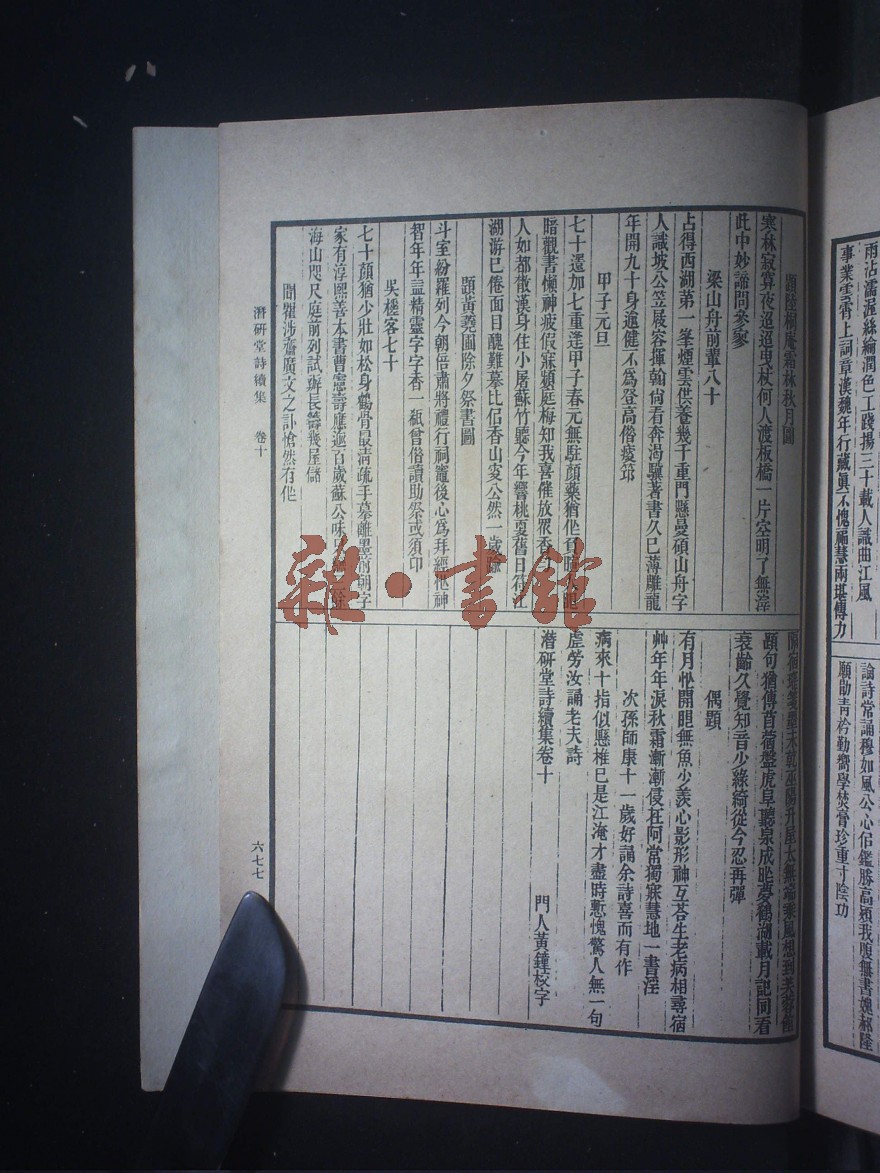 雨沾濡渥絲綸潤色工踐揚三十載人識曲江風
事業雲霄上詞章漢魏年行藏眞不愧福慧兩堪傳力
論詩常誦穆如風公心侶鑑勝高
我腹無書媿郝隆
願勛靑衿勤嚮學焚膏珍重寸陰功
題陸桐庵霜林秋月圖
寒林寂寞夜迢迢曳杖何人渡板橋一片空明了無滓
此中妙諦問參寥
梁山舟前輩八十
占得西湖第一峯煙雲供養幾千重門懸曼碩山舟字
人識坡公笠屐容揮翰尙看奔渴驥著書久已薄雕龍
年開九十身逾健不爲登高俗疲筇
甲子元旦
七十還加七重逢甲子春元無駐顏藥猶作
暗觀書懶神疲假寐頻庭梅知我喜催放眾香
人如都散漢身住小屠蘇竹聽今年響桃更舊日符江
湖游已倦面目醜難摹比侶香山叟公然一歲
題黃蕘圃除夕祭書圖
斗室紛羅列今朝倍肅將禮行祠竈後心爲拜經
神
智年年益精靈字字香一瓻曾俗讀助祭或須印
吳槎客七十
七十顏猶少壯如松身鶴骨最淸疏手摹
字
家有淳熙善本書曹憲壽應逾百歲蘇公味
海山咫尺庭前列試辦長籌幾屋儲
聞瞿涉齋廣文之訃愴然有作
題句猶傳苜蓿盤虎阜聽泉成昨夢鶴湖載月記同看
衰齡久覺知音少綠綺從今忍再彈
偶題
有月忺開眼無魚少羨心影形神互荅生老病相尋宿
艸年年淚秋霜漸漸侵在阿常獨寐慧地一書淫
次孫師康十一歲好誦余詩喜而有作
病來十指似懸椎已是江淹才盡時慙愧驚人無一句
虛勞汝誦老夫詩
潛硏堂詩續集卷十
門人黃鍾校字
潛硏堂詩續集 卷十
六七七
雜·書館